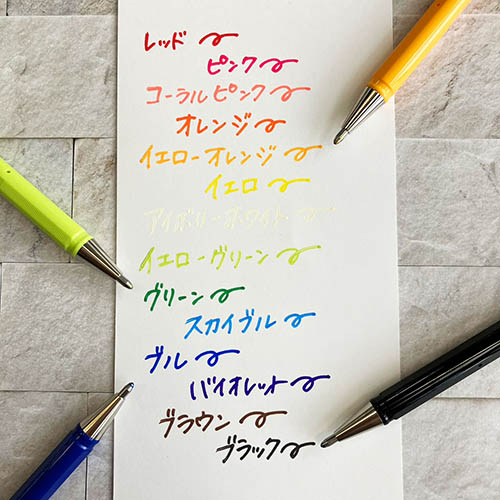 レッド
ピンク
コーラルピンク
オレンジ
イエローオレンジ
イエロ
アイボリーホワイト
イエローグリーン
グリーン
スカイブル
ブル
バイオレット
ブラウン
ブラック